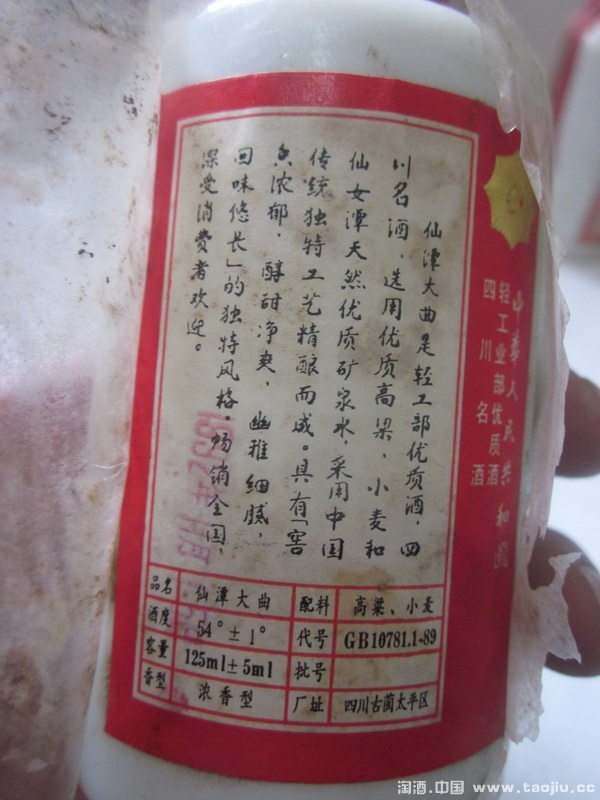 仙潭大曲是轻工部优质酒，四
川名酒，选用优质高粱，小麦和
仙女潭天然优质矿泉水，采用中国
传统独特工艺精酿而成。具有「窖
香浓郁，醇甜净爽，幽雅细腻，
回味悠长」的独特风格，畅销全国，
深受消费者欢迎。
品名 仙潭大曲 配料 高粱、小麦
酒度 54°±1° 代号 GB10781.1-89
容量 125ml±5ml 批号
香型 浓香型 厂址 四川古蔺太平区
中华人民共和国
轻工业部优质酒
四川名酒
淘酒.中国 www.taojiu.cc